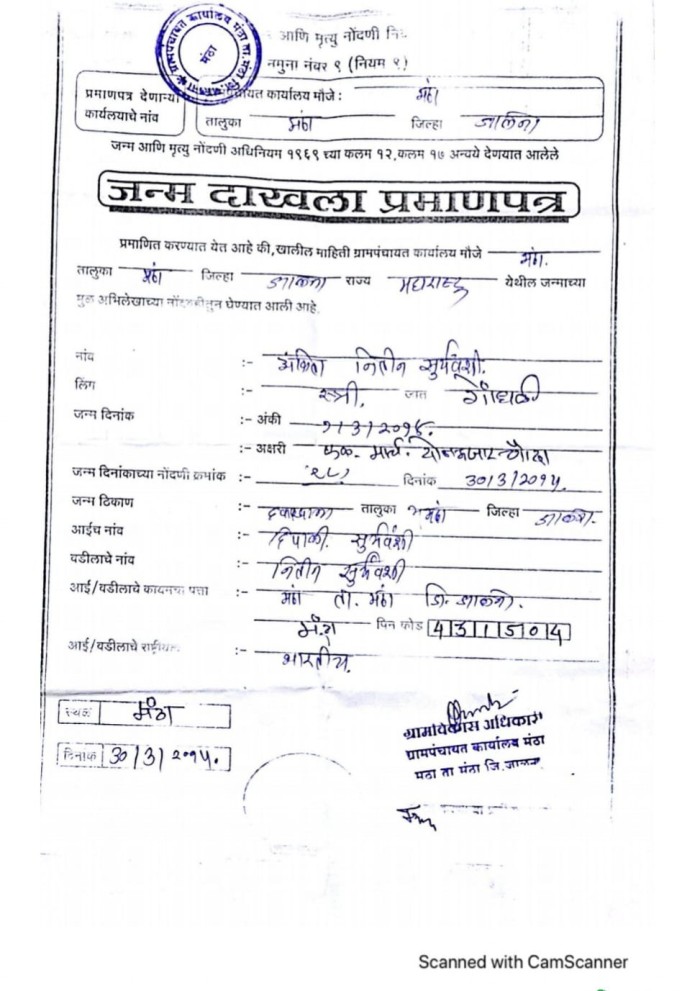 ग्रामपंचायत कार्यालय मंठा ता. मंठा जि. जालना
मंठा
आणि मृत्यु नोंदणी
नमुना नंबर ९ (नियम ९)
प्रमाणपत्र देणाऱ्या
कार्यालयाचे नांव
पंचायत कार्यालय मौजे : मंठा
तालुका मंठा जिल्हा जालना
जन्म आणि मृत्यु नोंदणी अधिनियम १९६९ च्या कलम १२,कलम १७ अन्वये देणयात आलेले
जन्म दाखला प्रमाणपत्र
प्रमाणित करण्यात येत आहे की,खालील माहिती ग्रामपंचायत कार्यालय मौजे मंठा.
तालुका मंठा जिल्हा जालना राज्य महाराष्ट्र येथील जन्माच्या
मुळ अभिलेखाच्या नोंदवहीतुन घेण्यात आली आहे.
नांव :- नितीन सुर्यवंशी.
लिंग :- स्त्री, जात गोंधळी
जन्म दिनांक :- अंकी
:- अक्षरी मार्च
जन्म दिनांकाच्या नोंदणी क्रमांक :- दिनांक 30/3/२०१५.
जन्म ठिकाण :- दवाखाना तालुका मंठा जिल्हा जालना.
आईच नांव :- दिपाली सुर्यवंशी
वडीलाचे नांव :- नितीन सुर्यवंशी
आई/वडीलाचे कायमचा पत्ता :- मंठा ता. मंठा जि. जालना.
मंठा पिन कोड 431504
आई/वडीलाचे राष्ट्रीयत्व :- भारतीय.
स्थळ मंठा
दिनांक 30/3/२०१५.
ग्रामविकास अधिकारी
ग्रामपंचायत कार्यालय मंठा
मठा ता मंठा जि.जालना
Scanned with CamScanner